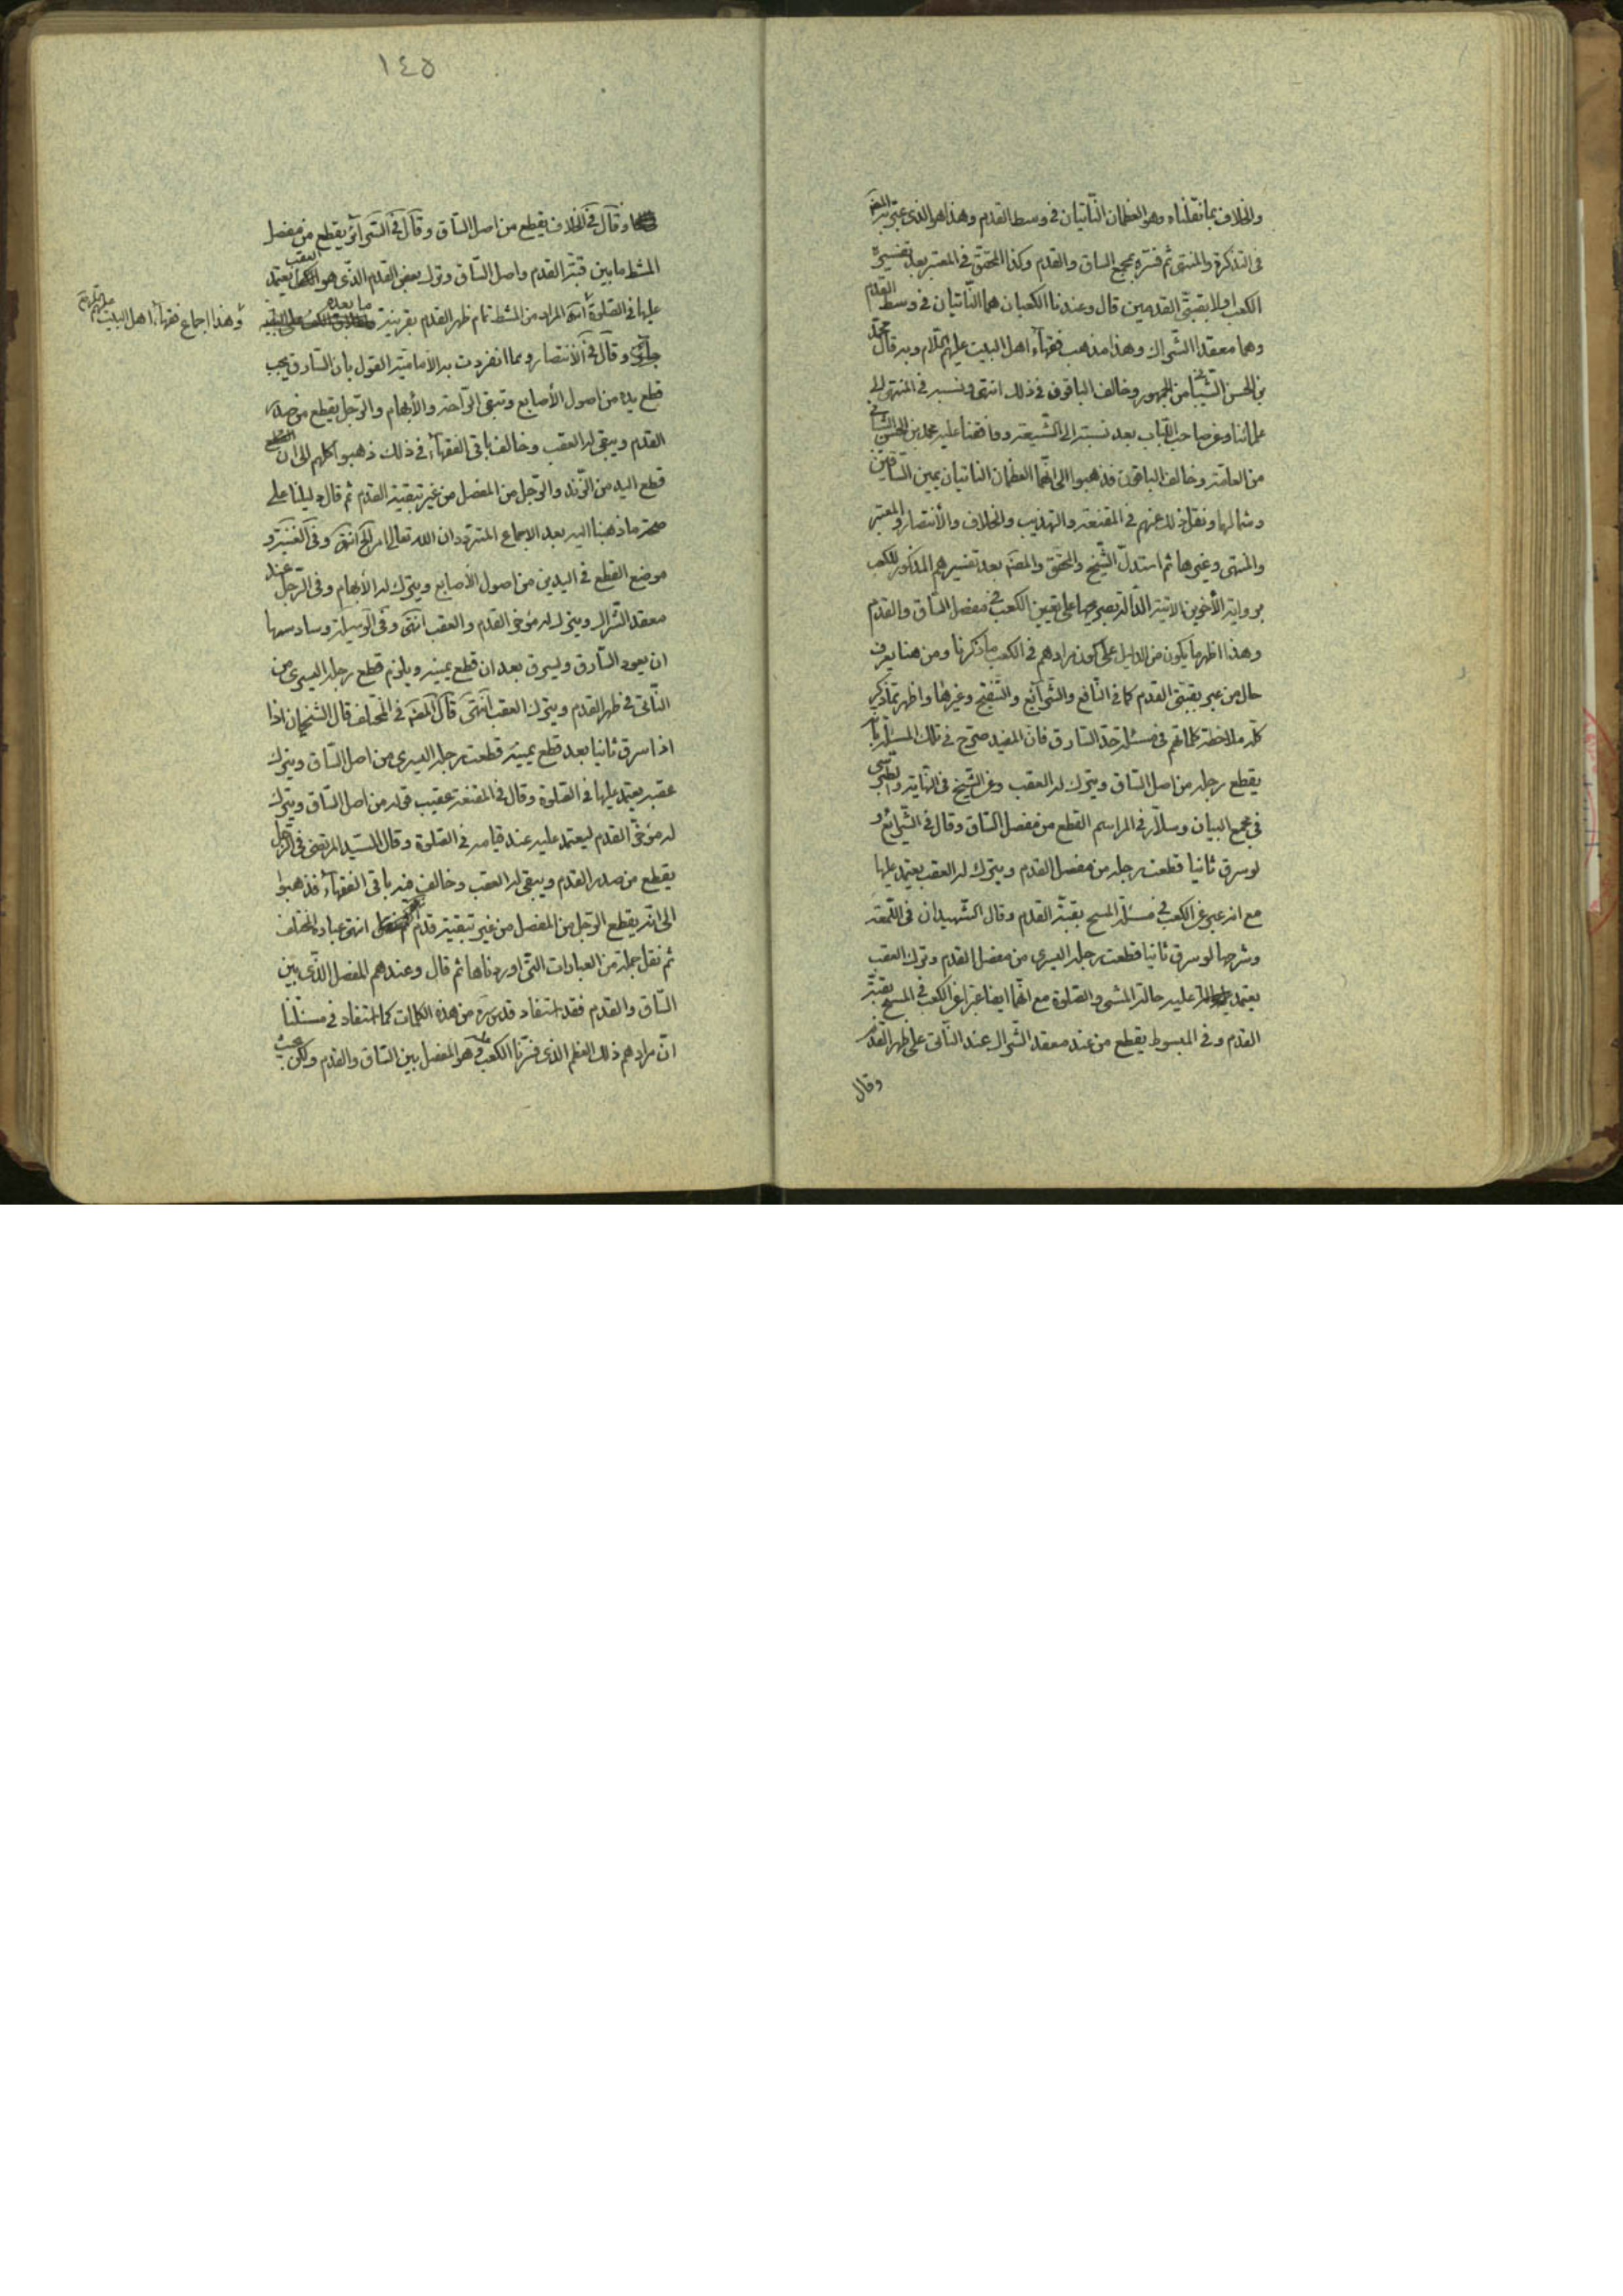 والخلاف بما نقلناه وهو العظمان الناتيان في وسط القدم وهذا هو الذى عبّر به المصَ
في التذكرة والمنتهى ثم فسّره بمجمع الساق والقدم وكذا المحقق في المعتبر بعد تفسيره
الكعب اولا بقبتى القدمين قال وعندنا الكعبان هما النّاتيان في وسط القدم
وهما معقدا الشراك وهذا مذهب فقهآء اهل البيت عليهم السّلام وبه قال محمّد
بن الحسن الشيبانى من الجمهور وخالف الباقون في ذلك انتهى ونسبه في المنتهى الى
علمائنا وعن صاحب اللّباب بعد نسبته الى الشّيعة ووافقنا عليه محمد بن الحسن الشيبانى
من العامّة وخالف الباقون فذهبوا الى انّهما العظمان الناتيان يمين السّاقين
وشمالهما ونقل ذلك عنهم في المقنعة والتهذيب والخلاف والأنتصار والمعتبر
والمنتهى وغيرها ثم استدلّ الشّيخ والمحقق والمصَ بعد تفسيرهم المذكور للكعب
برواية الأخوين الاتية الدّالة بصريحها على تعيين الكعب في مفصل السّاق والقدم
وهذا اظهر ما يكون من الدليل على كون مرادهم في الكعب ما ذكرنا ومن هنا يعرف
حال من عبر بقبّتى القدم كما في النّافع والشرآئع والتّنقيح وغيرها واظهر ممّا ذكر
كلّه ملاحظة كلماتهم في مسئلة حدّ السّارق فانّ المفيد صرّح في تلك المسئلة بأنّه
يقطع رجله من اصل السّاق ويترك له العقب وعن الشّيخ في النّهاية والطّبرسى
في مجمع البيان وسلّار في المراسم القطع من مفصل السّاق وقال في الشّرائع و
لو سرق ثانيا قطعت رجله من مفصل القدم ويترك له العقب يعتمد عليها
مع انه عبر عن الكعب في مسئلة المسح بقبّة القدم وقال الشّهيدان في اللّمعة
وشرحها لو سرق ثانيا قطعت رجله اليسرى من مفصل القدم وترك العقب
يعتمد عليه حالة المشى والصّلوة مع انّهما ايضا عبّرا عن الكعب في المسح بقبّة
القدم وفي المبسوط يقطع من عند معقد الشّراك عند النّاتى على ظهر القدم
وقال
١٤٥
وقال في الخلاف يقطع من اصل السّاق وقال في السّرآئر يقطع من مفصل
المشط ما بين قبّة القدم واصل السّاق وترك بعض القدم الذّى هو العقب يعتمد
عليها في الصّلوة المراد من المشط تمام ظهر القدم بقرينة ما بعده
وهذا اجماع فقهآء اهل البيت عليهم السّلم
وقال في الأنتصار ومما انفردت به الأماميّة القول بأن السّارق يجب
قطع يده من اصول الأصابع وتبقى الرّاحة والأبهام والرّجل يقطع من صدر
القدم ويبقى له العقب وخالف باقى الفقهآء في ذلك ذهبوا كلهم الى ان القطع
قطع اليد من الزّند والرّجل من المفصل من غير تبقية القدم ثم قال دليلنا على
صحة ما ذهبنا اليه بعد الاجماع المتردد ان الله تعالى امر الخ انتهى وفي الغنية و
موضع القطع في اليدين من اصول الأصابع ويترك له الأبهام وفي الرّجل عند
معقد الشّراك ويترك له مؤخر القدم والعقب انتهى وفي الوسيلة وسادسها
ان يعود السّارق ويسرق بعد ان قطع يمينه ويلزم قطع رجله اليسرى من
النّاتى في ظهر القدم ويترك العقب انتهى قال المصَ في المختلف قال الشّيخان اذا
اذا سرق ثانيا بعد قطع يمينه قطعت رجله اليسرى من اصل السّاق ويترك
عقبه يعتمد عليها في الصّلوة وقال في المقنعة عقيب قوله من اصل السّاق ويترك
له مؤخّر القدم ليعتمد عليه عند قيامه في الصّلوة وقال السّيّد المرتضى في الرّجل
يقطع من صدر القدم ويبقى له العقب وخالف فيه باقى الفقهآء فذهبوا
الى انّه يقطع الرّجل من المفصل من غير تبقية قدم انتهى عبارة المختلف
ثم نقل جملة من العبارات التّى اوردناها ثم قال وعندهم المفصل الذّى بين
السّاق والقدم فقد استفاد قدس سرّه من هذه الكلمات كما استفاد في مسئلتنا
انّ مرادهم ذلك العظم الذى فسّرنا الكعب به هو المفصل بين السّاق والقدم ولكن